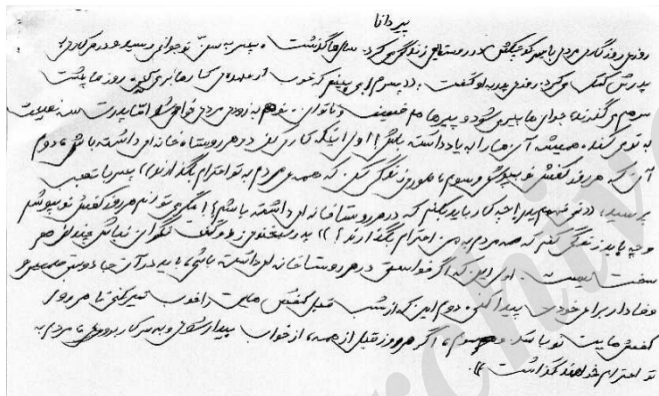 پیر دانا
روزی روزگاری مردی با پسر کوچکش در روستایی زندگی می‌کرد. سال‌ها گذشت و پسر به سنّ نوجوانی رسید و در هر کاری به
پدرش کمک می‌کرد. روزی پدر به او گفت: «پسرم! می‌بینم که خوب از عهده‌ی کارها بر می‌آیی. روزها پشت
سر هم می‌گذرند، جوان‌ها پیر می‌شوند و پیرها هم ضعیف و ناتوان. تو هم به زودی مردی خواهی شد، اما پدرت سه نصیحت
به تو می‌کند. همیشه آن‌ها را به یاد داشته باش! اول اینکه کاری کن در هر روستا، خانه‌ای داشته باشی، دوم
آن که هر روز کفش نو بپوشی و سوم، طوری زندگی کن که همه‌ی مردم به تو احترام بگذارند.» پسر با تعجب
پرسید: «نفهمیدم پدر! چه کار باید بکنم که در هر روستا خانه‌ای داشته باشم؟! مگر می‌توانم هر روز کفش نو بپوشم
و چه باید زندگی کنم که همه مردم به من احترام بگذارند؟» پدر لبخندی زد و گفت: نگران نباش، چندان هم
سخت نیست. اول این که اگر خواستی در هر روستا خانه‌ای داشته باشی، باید در آن جا دوستی صمیمی و
وفادار برای خودت پیدا کنی، دوم این که از شب قبل کفش هایت را خوب تمیز کنی تا هر روز
کفش هایت نو باشد. و سوم، اگر هر روز قبل از همه، از خواب بیدار شوی و به سر کار بروی، مردم به
تو احترام خواهند گذاشت.»
archiv